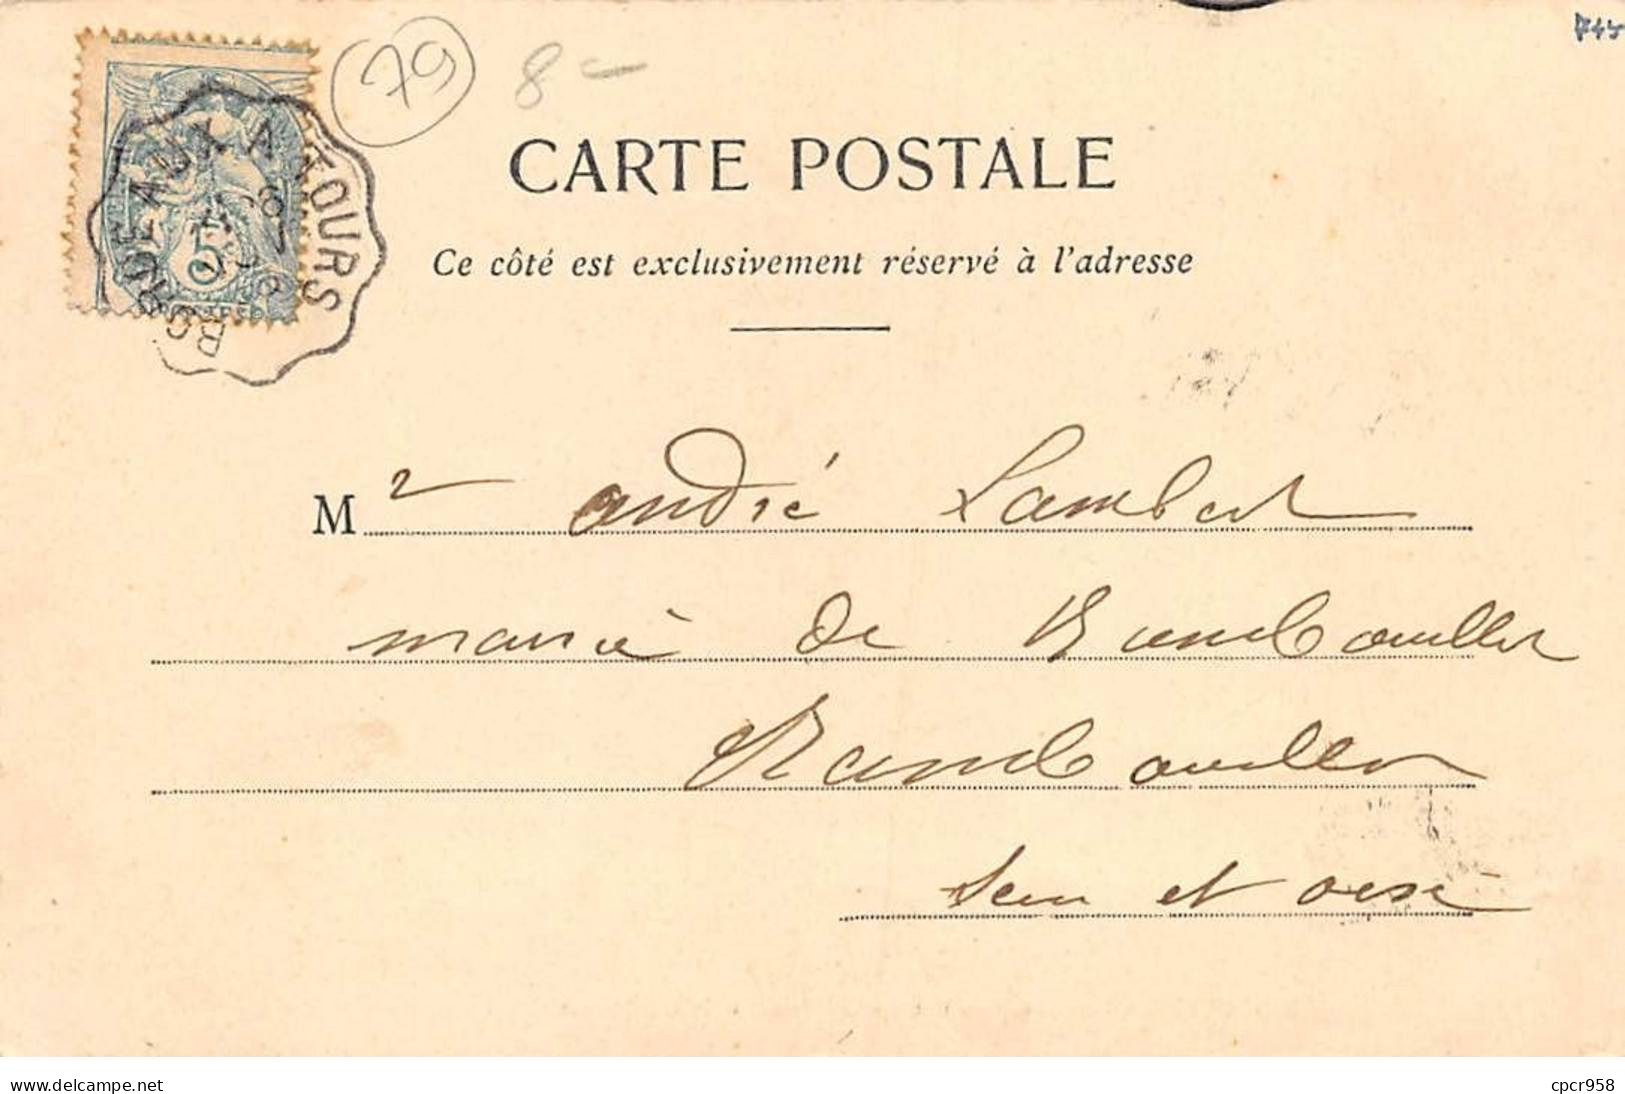 79
8 –
CARTE POSTALE
Ce côté est exclusivement réservé à l'adresse
BORDEAUX A TOURS
5
M r andré Lambert
mairie de Rambouillet
Rambouillet
Seine et oise
delcampe.net
cpcr958